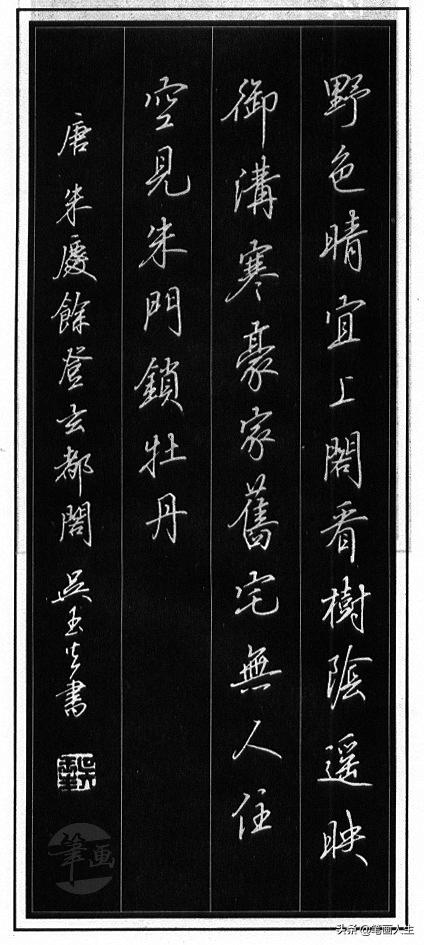 野色晴宜上閣看樹陰遥映
御溝寒豪家舊宅無人住
空見朱門鎖牡丹
唐朱慶餘登玄都閣 吳玉生書
筆画
头条@笔画人生